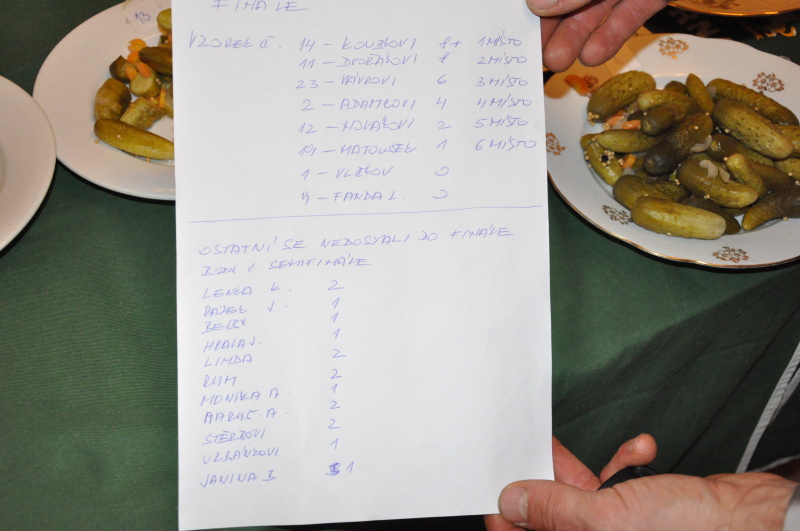 FINÁLE
VZOREK Č. 14 - KOUBKOVI 8+ 1 MÍSTO
11 - DVOŘÁKOVI 8 2 MÍSTO
23 - PÁVKOVI 6 3 MÍSTO
2 - ADAMCOVI 4 4 MÍSTO
12 - NOVÁKOVI 2 5 MÍSTO
19 - MATOUŠEK 1 6 MÍSTO
1 - 0
9 - FANDA L. 0
OSTATNÍ SE NEDOSTALI DO FINÁLE
BODY V SEMIFINÁLE
LENKA K. 2
J. 1
1
HRALA J. 1
LINDA 2
2
MONIKA A. 1
A. 2
2
URBÁNKOVI 1
JANINA B 1
13